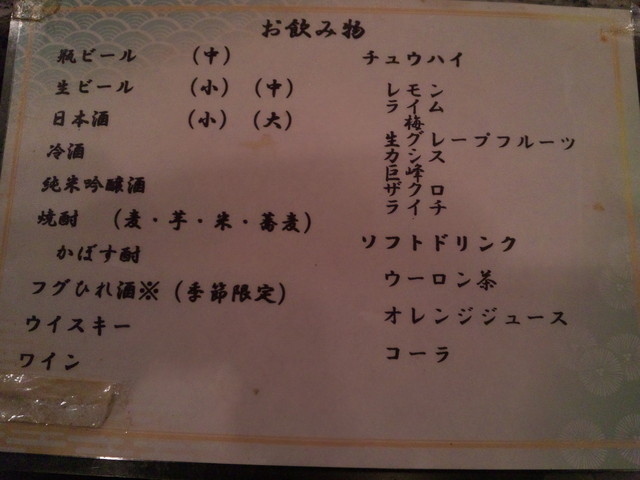 お飲み物
瓶ビール （中）
生ビール （小）（中）
日本酒 （小）（大）
冷酒
純米吟醸酒
焼酎 （麦・芋・米・蕎麦）
かぼす酎
フグひれ酒※（季節限定）
ウイスキー
ワイン
チュウハイ
レモン
ライム
梅
生グレープフルーツ
カシス
巨峰
ザクロ
ライチ
ソフトドリンク
ウーロン茶
オレンジジュース
コーラ